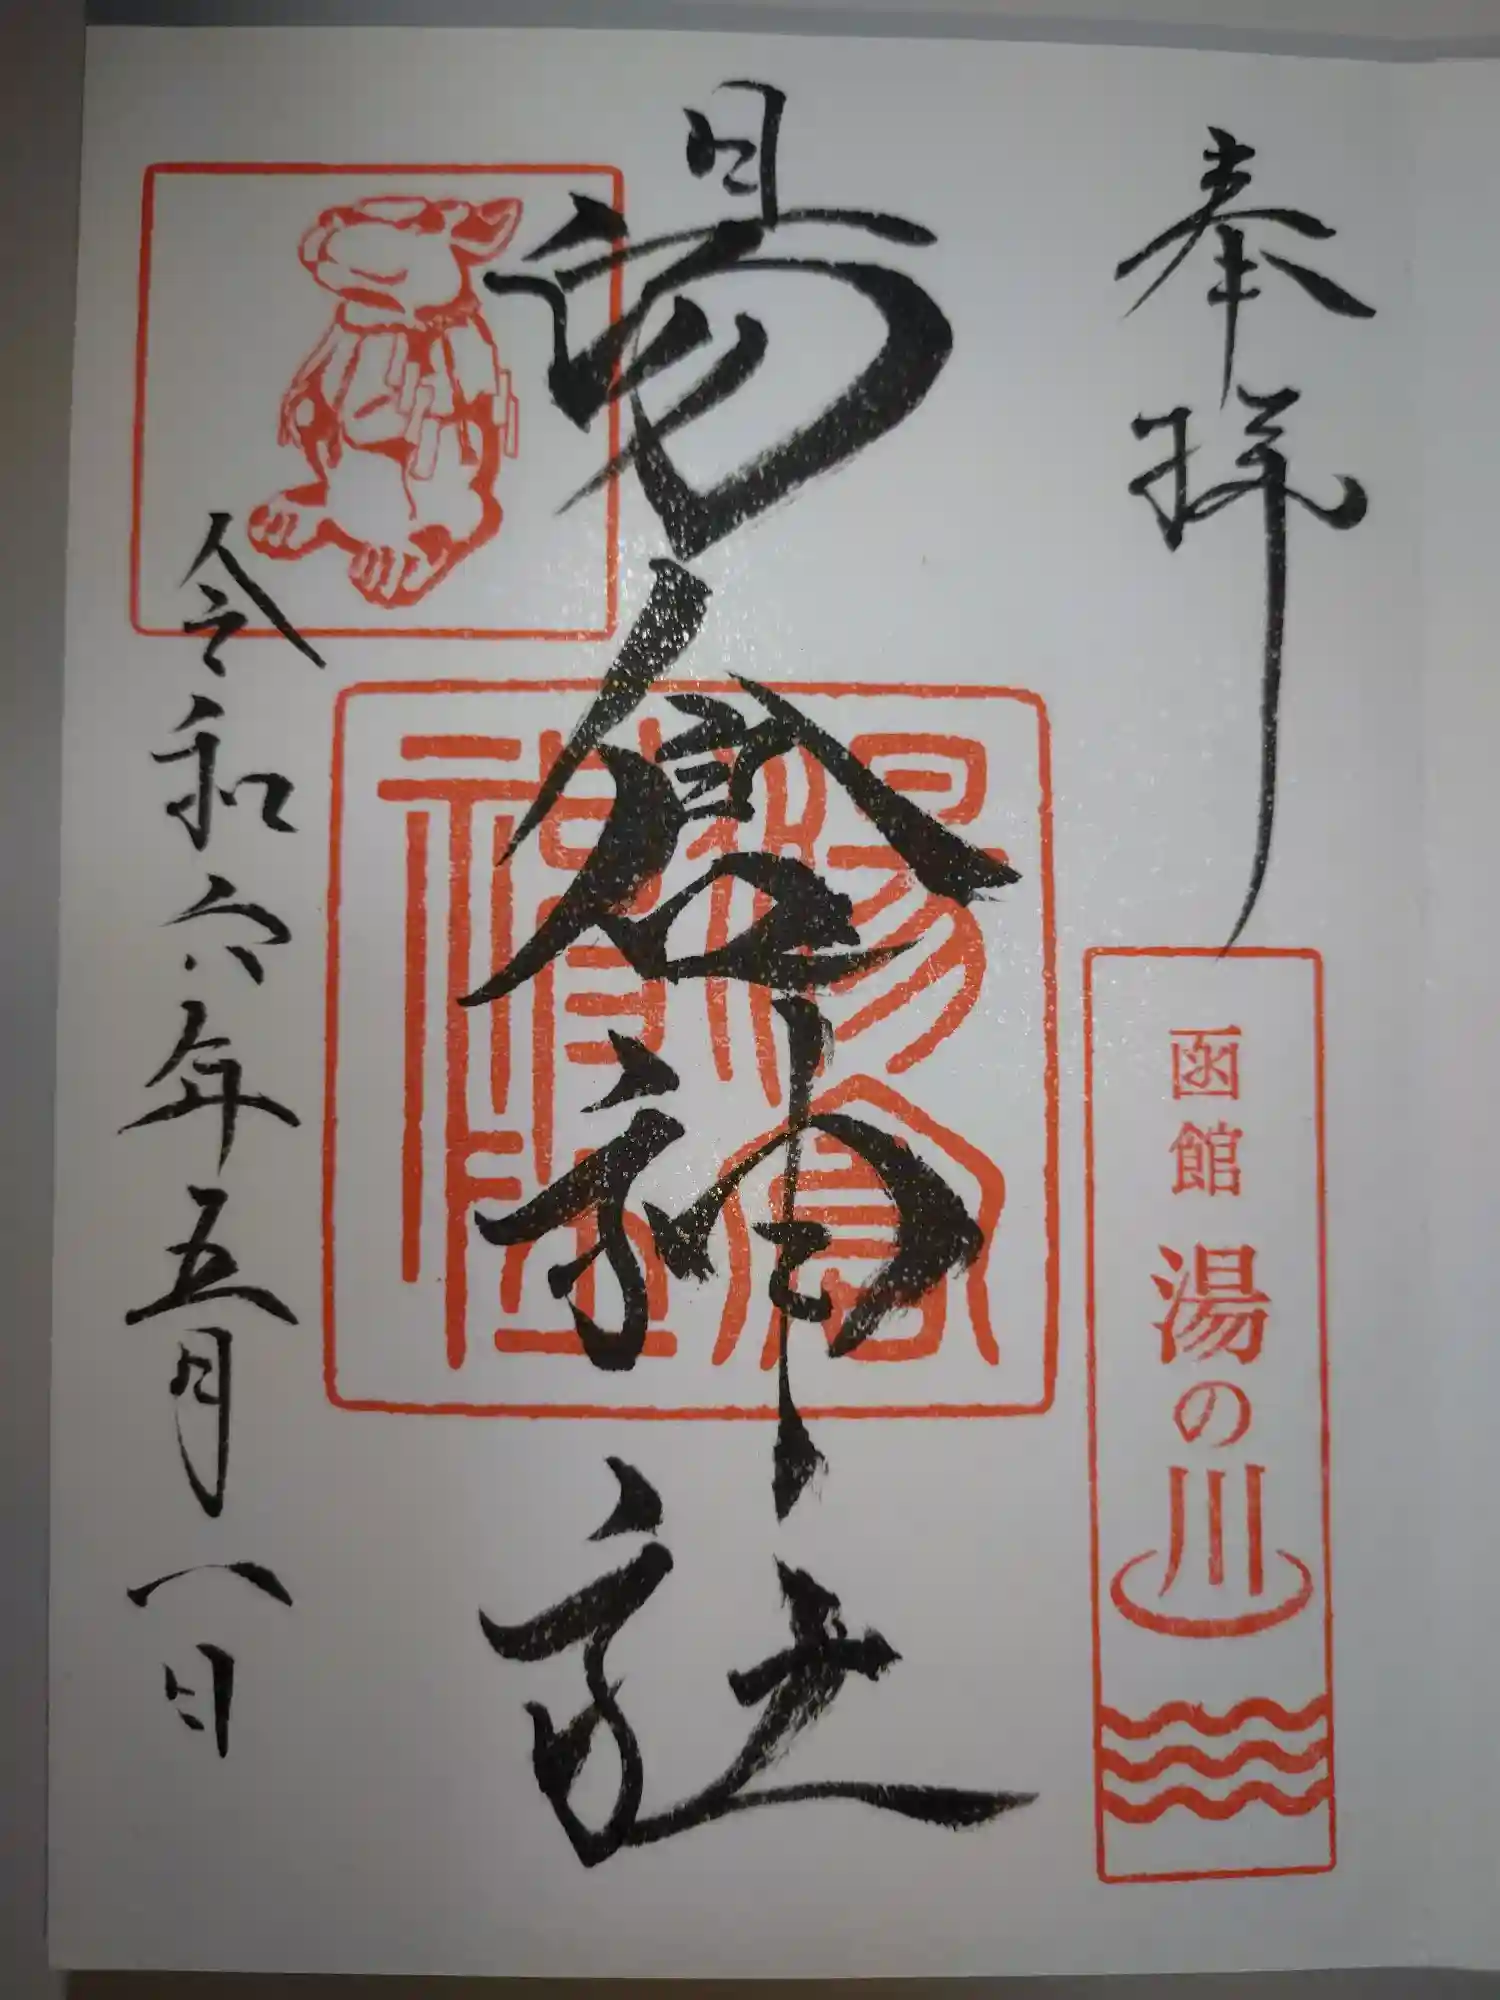 奉拝
函館 湯の川
湯倉神社
湯倉神社
令和六年五月一日